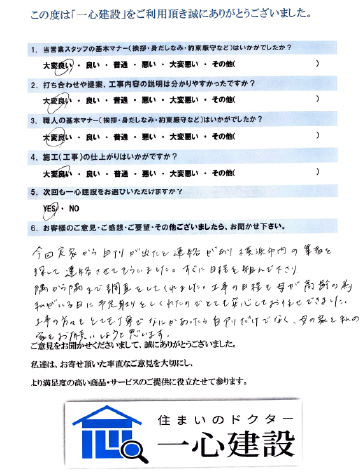 この度は「一心建設」をご利用頂き誠にありがとうございました。
1. 当営業スタッフの基本マナー(挨拶・身だしなみ・約束厳守など)はいかがでしたか？
大変良い ・ 良い ・ 普通 ・ 悪い ・ 大変悪い ・ その他( )
2. 打ち合わせや提案、工事内容の説明は分かりやすかったですか？
大変良い ・ 良い ・ 普通 ・ 悪い ・ 大変悪い ・ その他( )
3. 職人の基本マナー(挨拶・身だしなみ・約束厳守など)はいかがでしたか？
大変良い ・ 良い ・ 普通 ・ 悪い ・ 大変悪い ・ その他( )
4. 施工(工事)の仕上がりはいかがですか？
大変良い ・ 良い ・ 普通 ・ 悪い ・ 大変悪い ・ その他( )
5. 次回も一心建設をお選びいただけますか？
YES ・ NO
6. お客様のご意見・ご感想・ご要望・その他ございましたら、お聞かせ下さい。
今回実家から白アリが出たと連絡があり横浜市内の業者を
探して連絡させてもらいました。すぐに日程を組んで下さり
隅から隅まで調査をしてくれました。工事の日程も母が高齢の為
私がいる日に 見積りをしてくれたのでとても安心しておまかせできました。
工事の方もとても丁寧で なにかあったら白アリだけでなく、母の家と私の
家をお願いしようと思います。
ご意見をお聞かせくださいまして、誠にありがとうございました。
私達は、お寄せ頂いた率直なご意見を大切にし、
より満足度の高い商品・サービスのご提供に役立たせて参ります。
住まいのドクター
一心建設